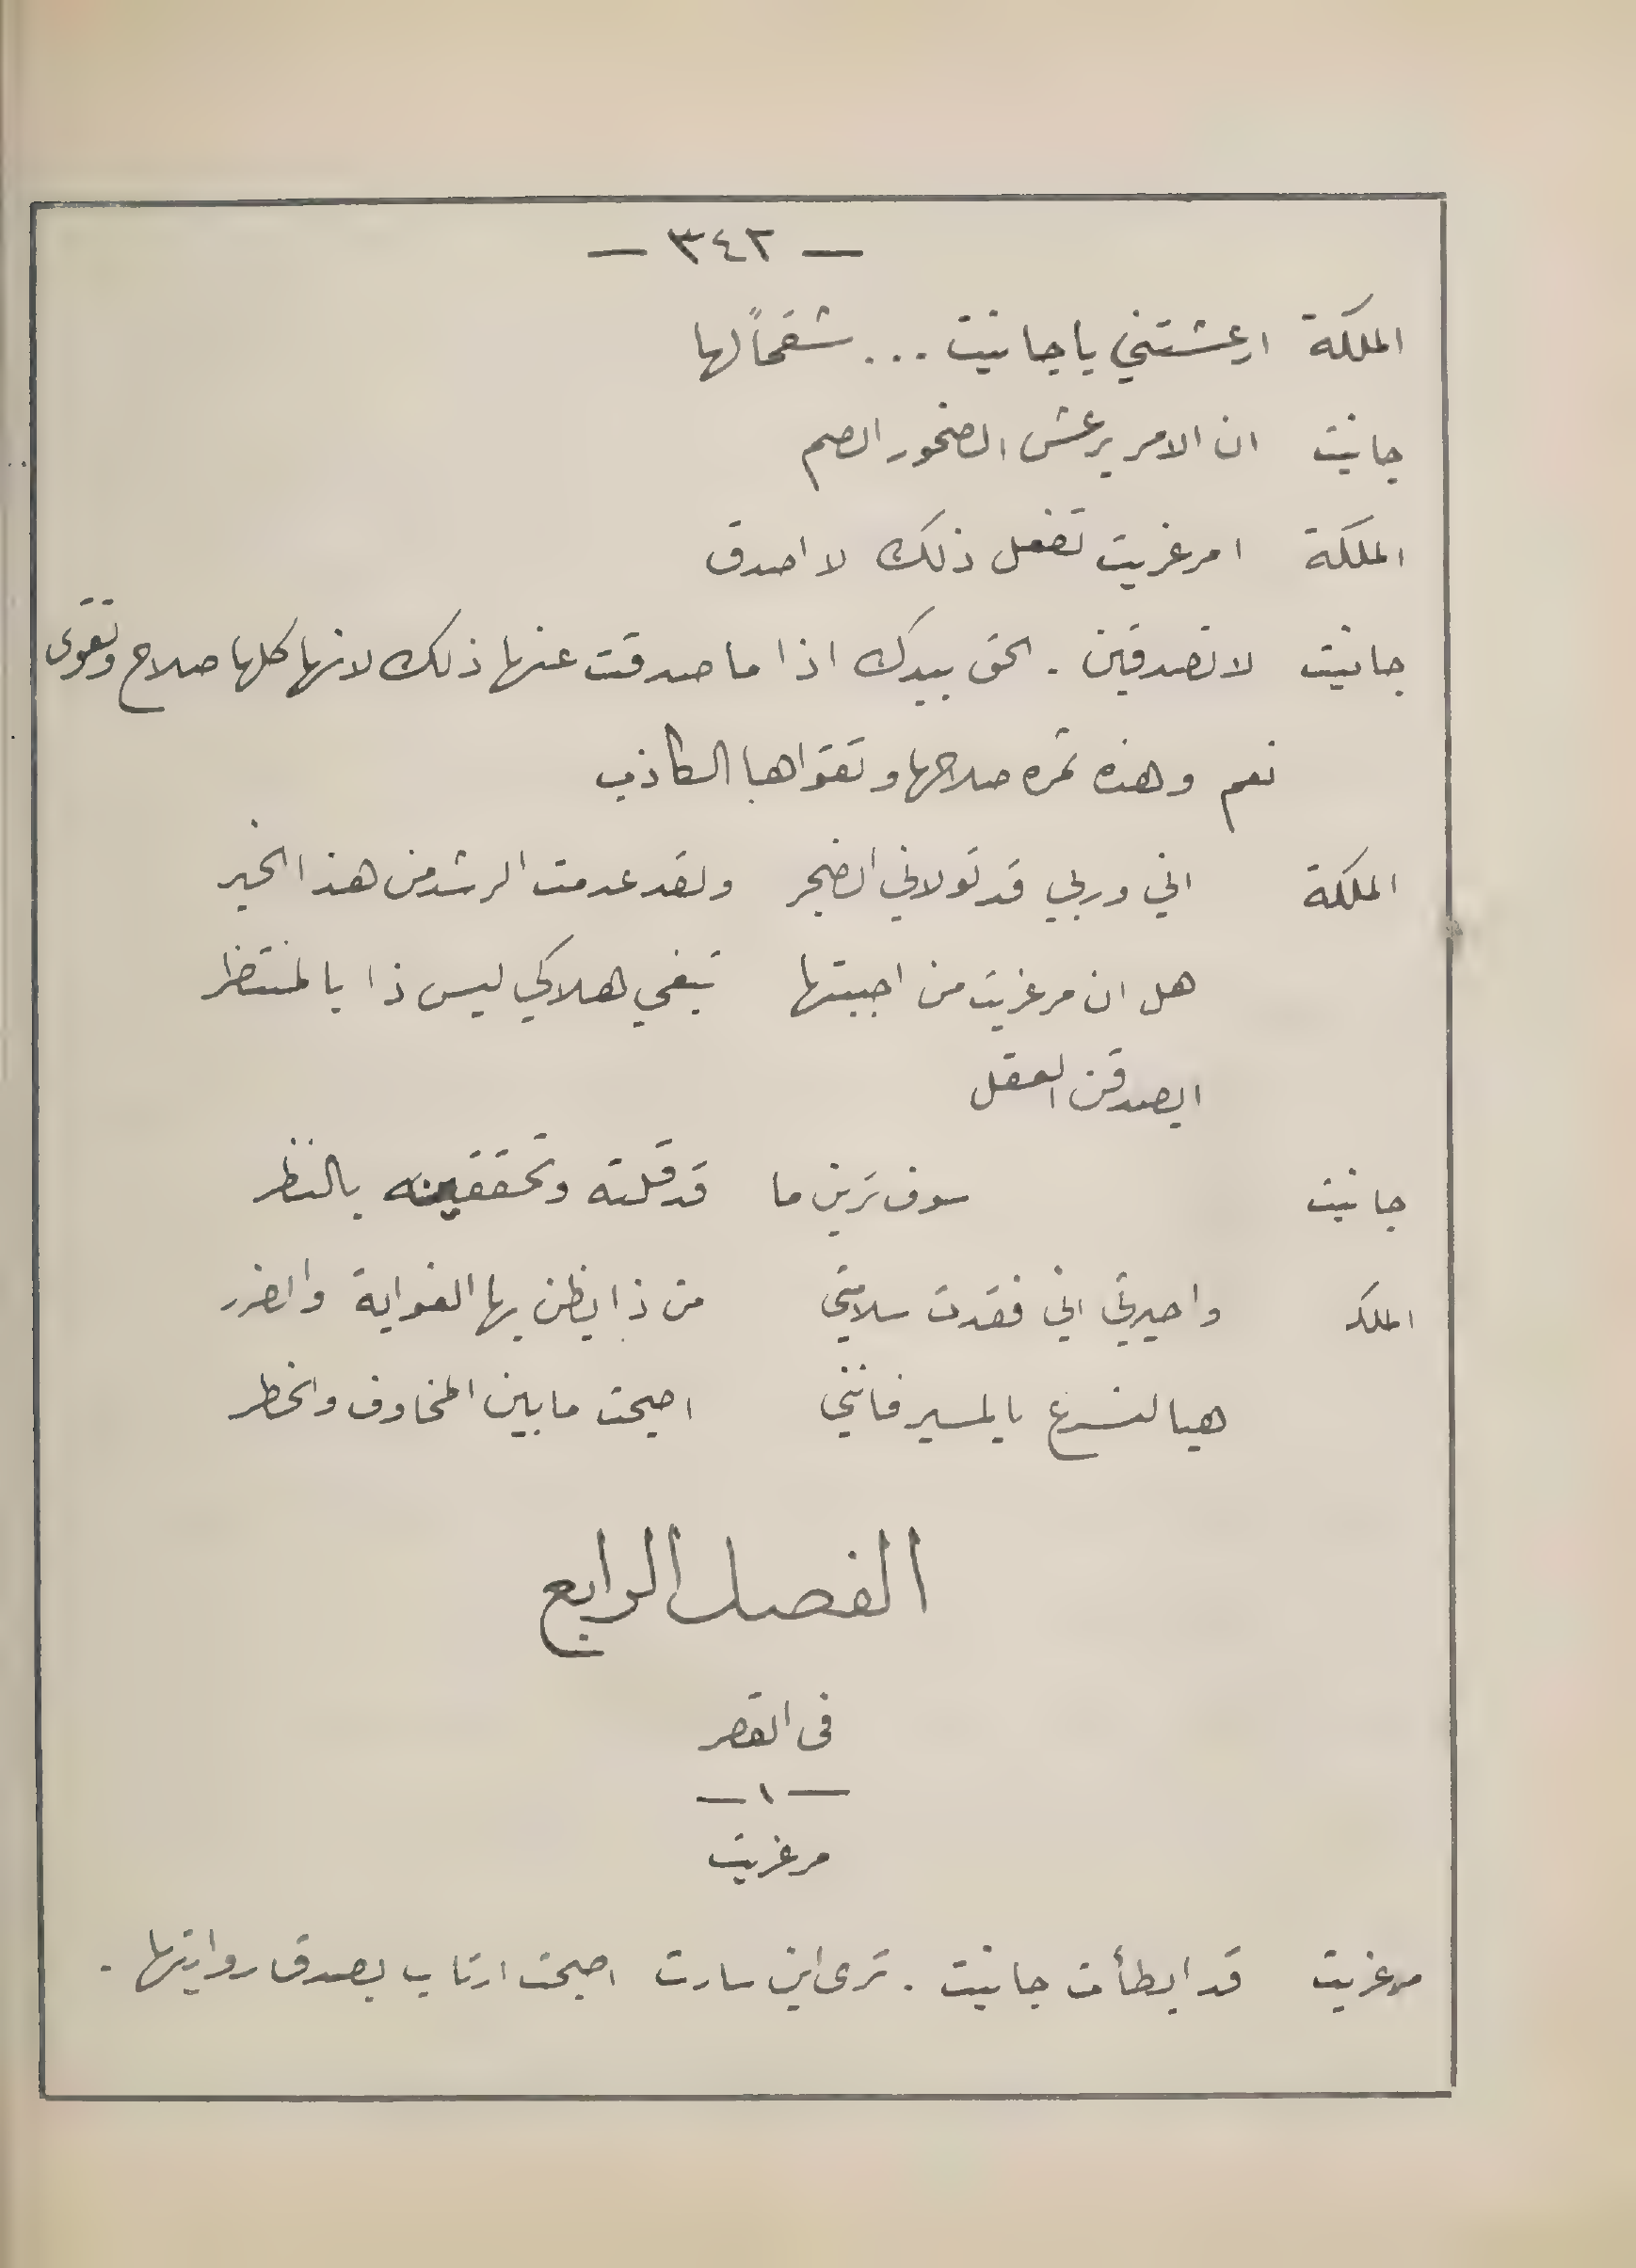 — ٣٤٢ —
الملكة ارعشتني يا جانيت ... شقحاً لها
جانيت ان الامر يرعش الصخور الصم
الملكة امرغريت تفعل ذلك لا اصدق
جانيت لا تصدقين . الحق بيدك اذا ما صدقت عنها ذلك لانها كلها صلاح وتقوى
نعم وهذه ثمره صلاحها وتقواها الكاذب
الملكة اني وربي قد تولاني الضجر ولقد عدمت الرشد من هذا الخبر
هل ان مرغريت من احببتها تبغي هلاكي ليس ذا بالمنتظر
ايصدقن العقل
جانيت سوف ترين ما قد قلته وتحققينه بالنظر
الملكة واحيرتي اني فقدت سلامتي من ذا يظن بها الغواية والضرر
هيا لنسرع بالمسير فانني اصبحت ما بين المخاوف والخطر
الفصل الرابع
فى القصر
— ١ —
مرغريت
مرغريت قد ابطأت جانيت . ترى اين سارت اصبحت ارتاب بصدق روايتها .